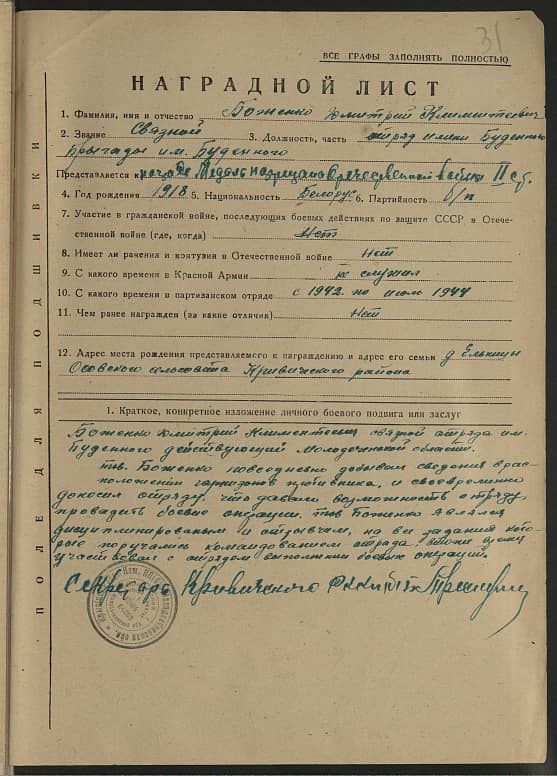 31
ВСЕ ГРАФЫ ЗАПОЛНЯТЬ ПОЛНОСТЬЮ
НАГРАДНОЙ ЛИСТ
1. Фамилия, имя и отчество Боженко Дмитрий Климентьевич
2. Звание Связной 3. Должность, часть отряд имени Буденного
бригады им. Буденного
Представляется к награде Медаль партизан отечественной войны II ст.
4. Год рождения 1918 5. Национальность Белорус 6. Партийность б/п
7. Участие в гражданской войне, последующих боевых действиях по защите СССР, в Отече-
ственной войне (где, когда) Нет
8. Имеет ли рачения и контузии в Отечественной войне Нет
9. С какого времени в Красной Армии не служил
10. С какого времени в партизанском отряде с 1942 по июль 1944
11. Чем ранее награжден (за какие отличия) Нет
12. Адрес места рождения представляемого к награждению и адрес его семьи д.
Осовского сельсовета Кривичского района
1. Краткое, конкретное изложение личного боевого подвига или заслуг
Боженко Дмитрий Климентьевич связной отряда им.
Буденного действующий Молодечненской области.
тов. Боженко повседневно добывал сведения о рас-
положении гарнизонов противника, и своевременно
доносил отряду, что давало возможность отряду
проводить боевые операции. тов Боженко являлся
дисциплинированым и, на все задания кот-
рые поручались командованием отряда.
участвовал с отрядом выполнении боевых операций.
Секретарь Кривичского РК КП(б)Б
ПОЛЕ ДЛЯ ПОДШИВКИ